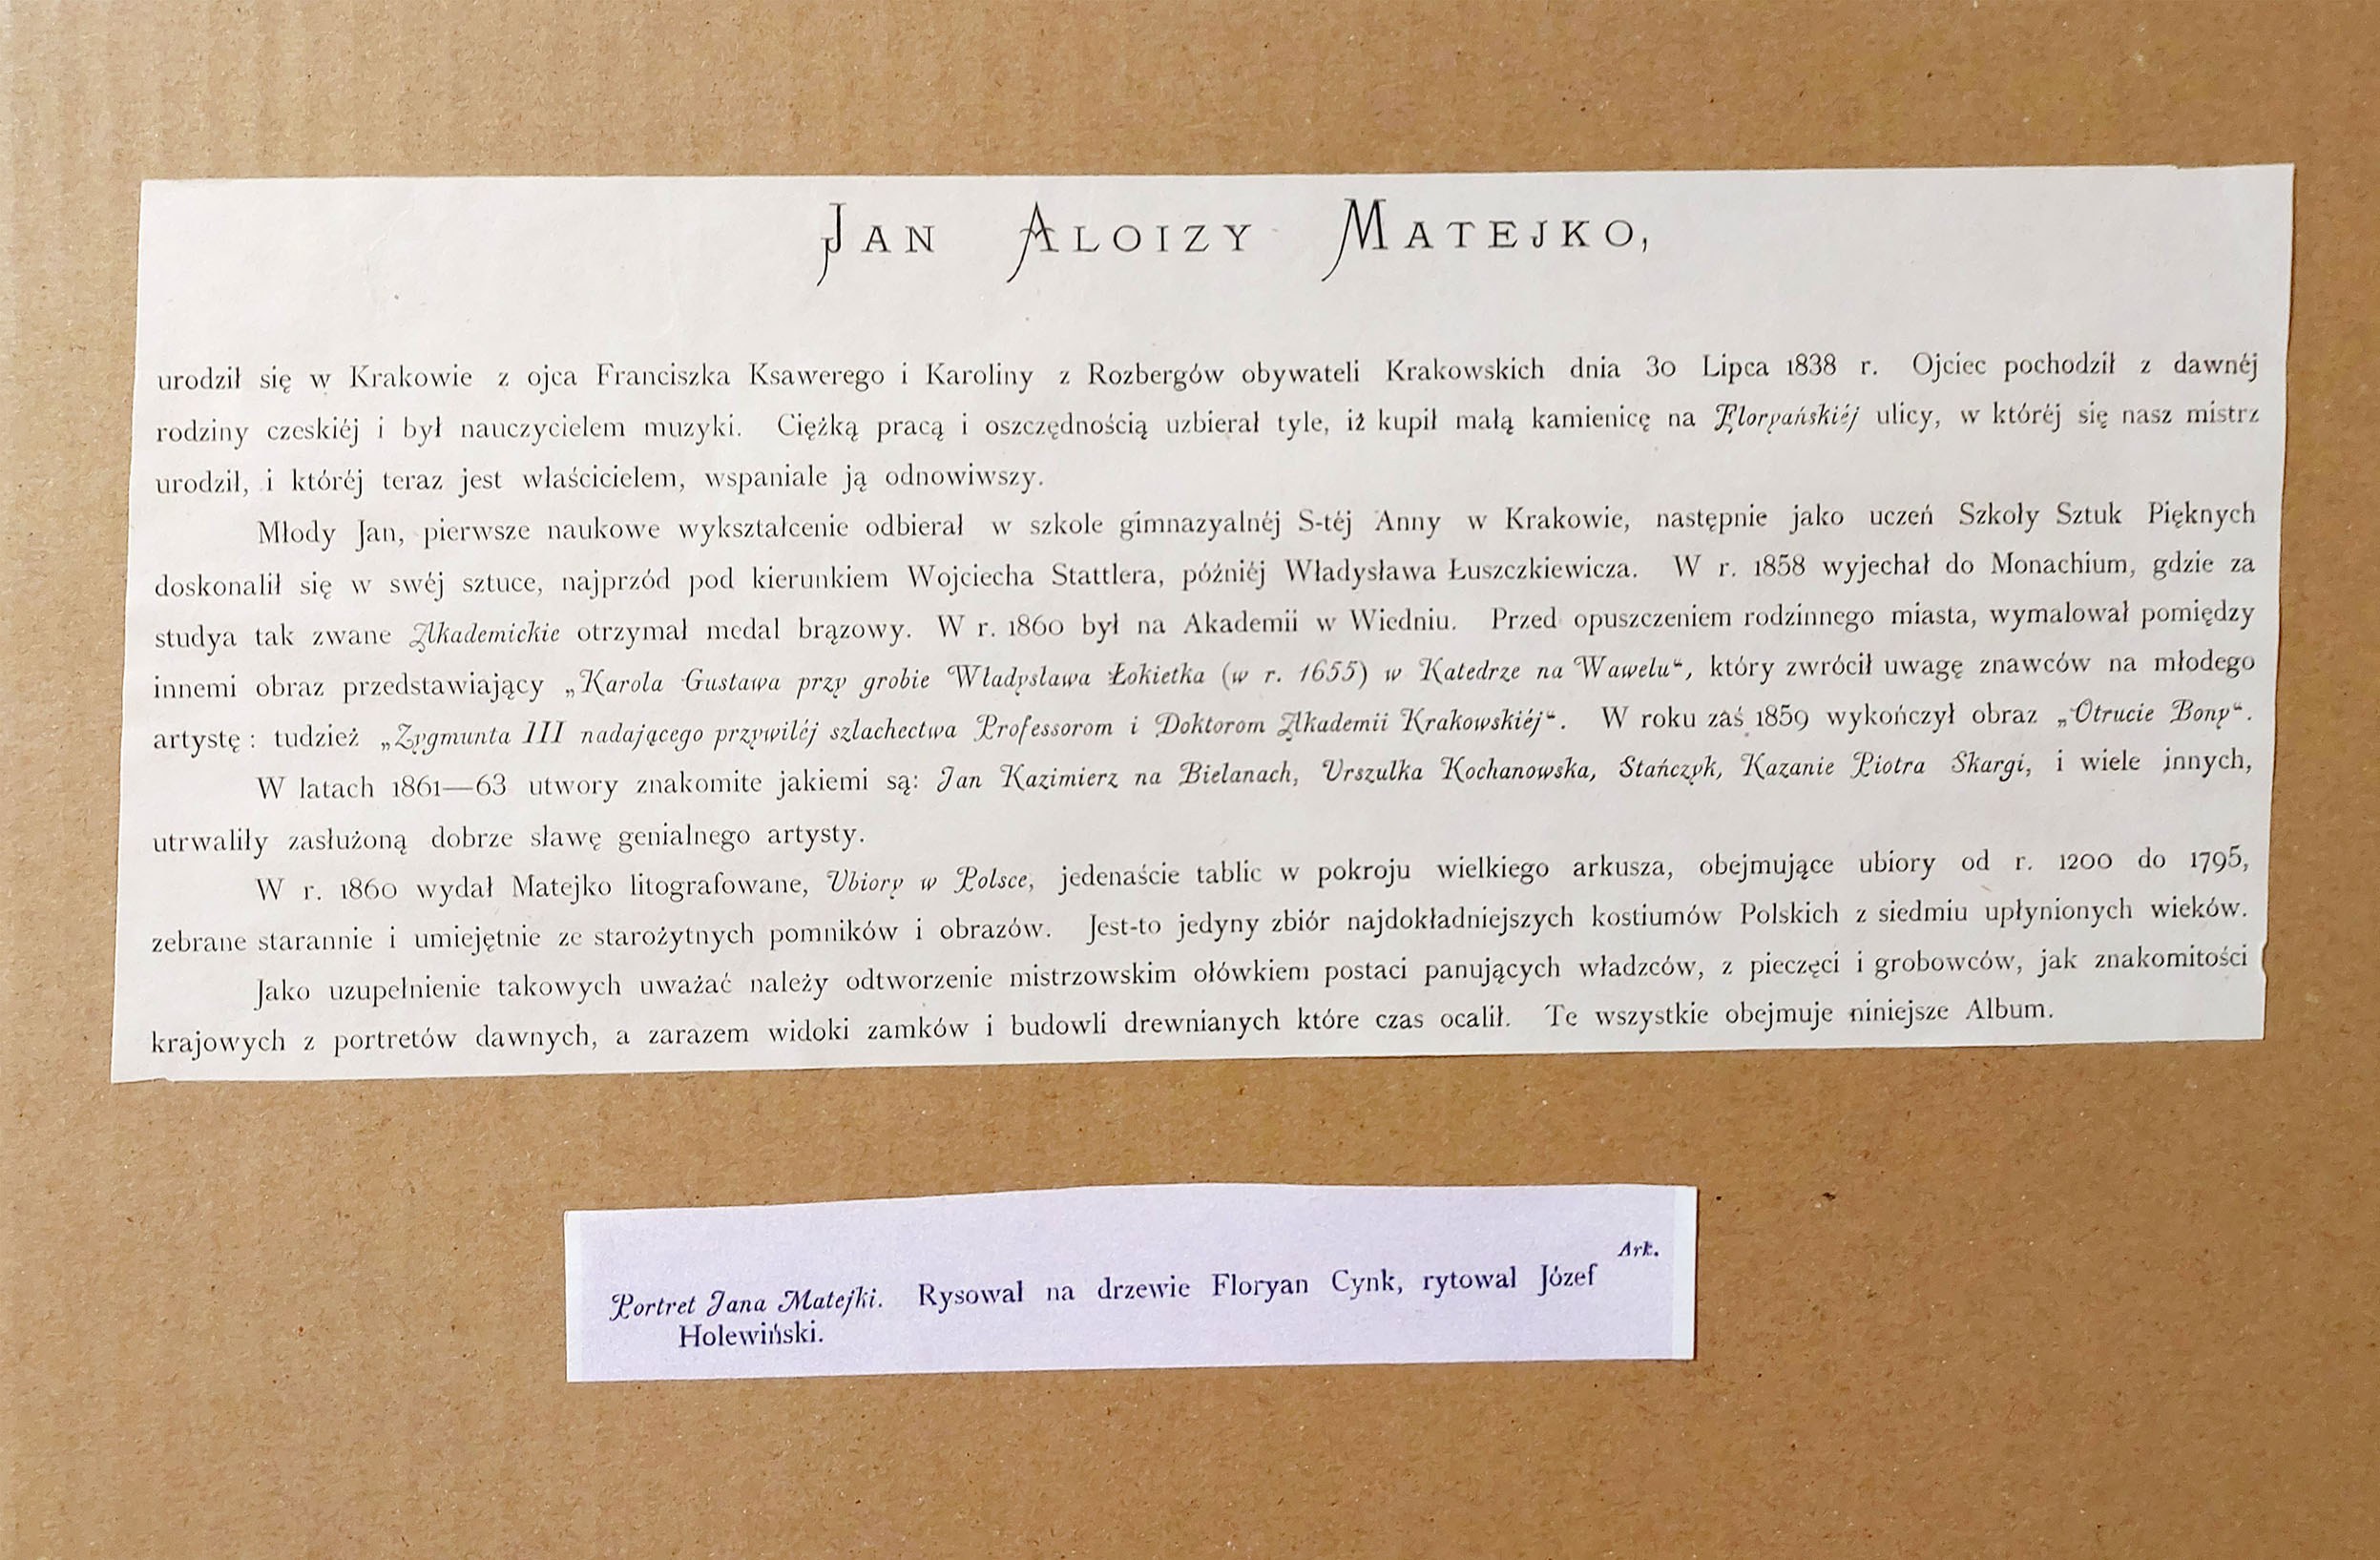 JAN ALOIZY MATEJKO,
urodził się w Krakowie z ojca Franciszka Ksawerego i Karoliny z Rozbergów obywateli Krakowskich dnia 30 Lipca 1838 r. Ojciec pochodził z dawnéj
rodziny czeskiéj i był nauczycielem muzyki. Ciężką pracą i oszczędnością uzbierał tyle, iż kupił małą kamienicę na Floryańskiéj ulicy, w któréj się nasz mistrz
urodził, i któréj teraz jest właścicielem, wspaniale ją odnowiwszy.
Młody Jan, pierwsze naukowe wykształcenie odbierał w szkole gimnazyalnéj S-téj Anny w Krakowie, następnie jako uczeń Szkoły Sztuk Pięknych
doskonalił się w swéj sztuce, najprzód pod kierunkiem Wojciecha Stattlera, późniéj Władysława Łuszczkiewicza. W r. 1858 wyjechał do Monachium, gdzie za
studya tak zwane Akademickie otrzymał medal brązowy. W r. 1860 był na Akademii w Wiedniu. Przed opuszczeniem rodzinnego miasta, wymalował pomiędzy
innemi obraz przedstawiający „Karola Gustawa przy grobie Władysława Łokietka (w r. 1655) w Katedrze na Wawelu“, który zwrócił uwagę znawców na młodego
artystę: tudzież „Zygmunta III nadającego przywiléj szlachectwa Professorom i Doktorom Akademii Krakowskiéj“. W roku zaś 1859 wykończył obraz „Otrucie Bony“.
W latach 1861—63 utwory znakomite jakiemi są: Jan Kazimierz na Bielanach, Urszulka Kochanowska, Stańczyk, Kazanie Piotra Skargi, i wiele innych,
utrwaliły zasłużoną dobrze sławę genialnego artysty.
W r. 1860 wydał Matejko litografowane, Ubiory w Polsce, jedenaście tablic w pokroju wielkiego arkusza, obejmujące ubiory od r. 1200 do 1795,
zebrane starannie i umiejętnie ze starożytnych pomników i obrazów. Jest-to jedyny zbiór najdokładniejszych kostiumów Polskich z siedmiu upłynionych wieków.
Jako uzupełnienie takowych uważać należy odtworzenie mistrzowskim ołówkiem postaci panujących władzców, z pieczęci i grobowców, jak znakomitości
krajowych z portretów dawnych, a zarazem widoki zamków i budowli drewnianych które czas ocalił. Te wszystkie obejmuje niniejsze Album.
Ark.
Portret Jana Matejki. Rysował na drzewie Floryan Cynk, rytował Józef
Holewiński.